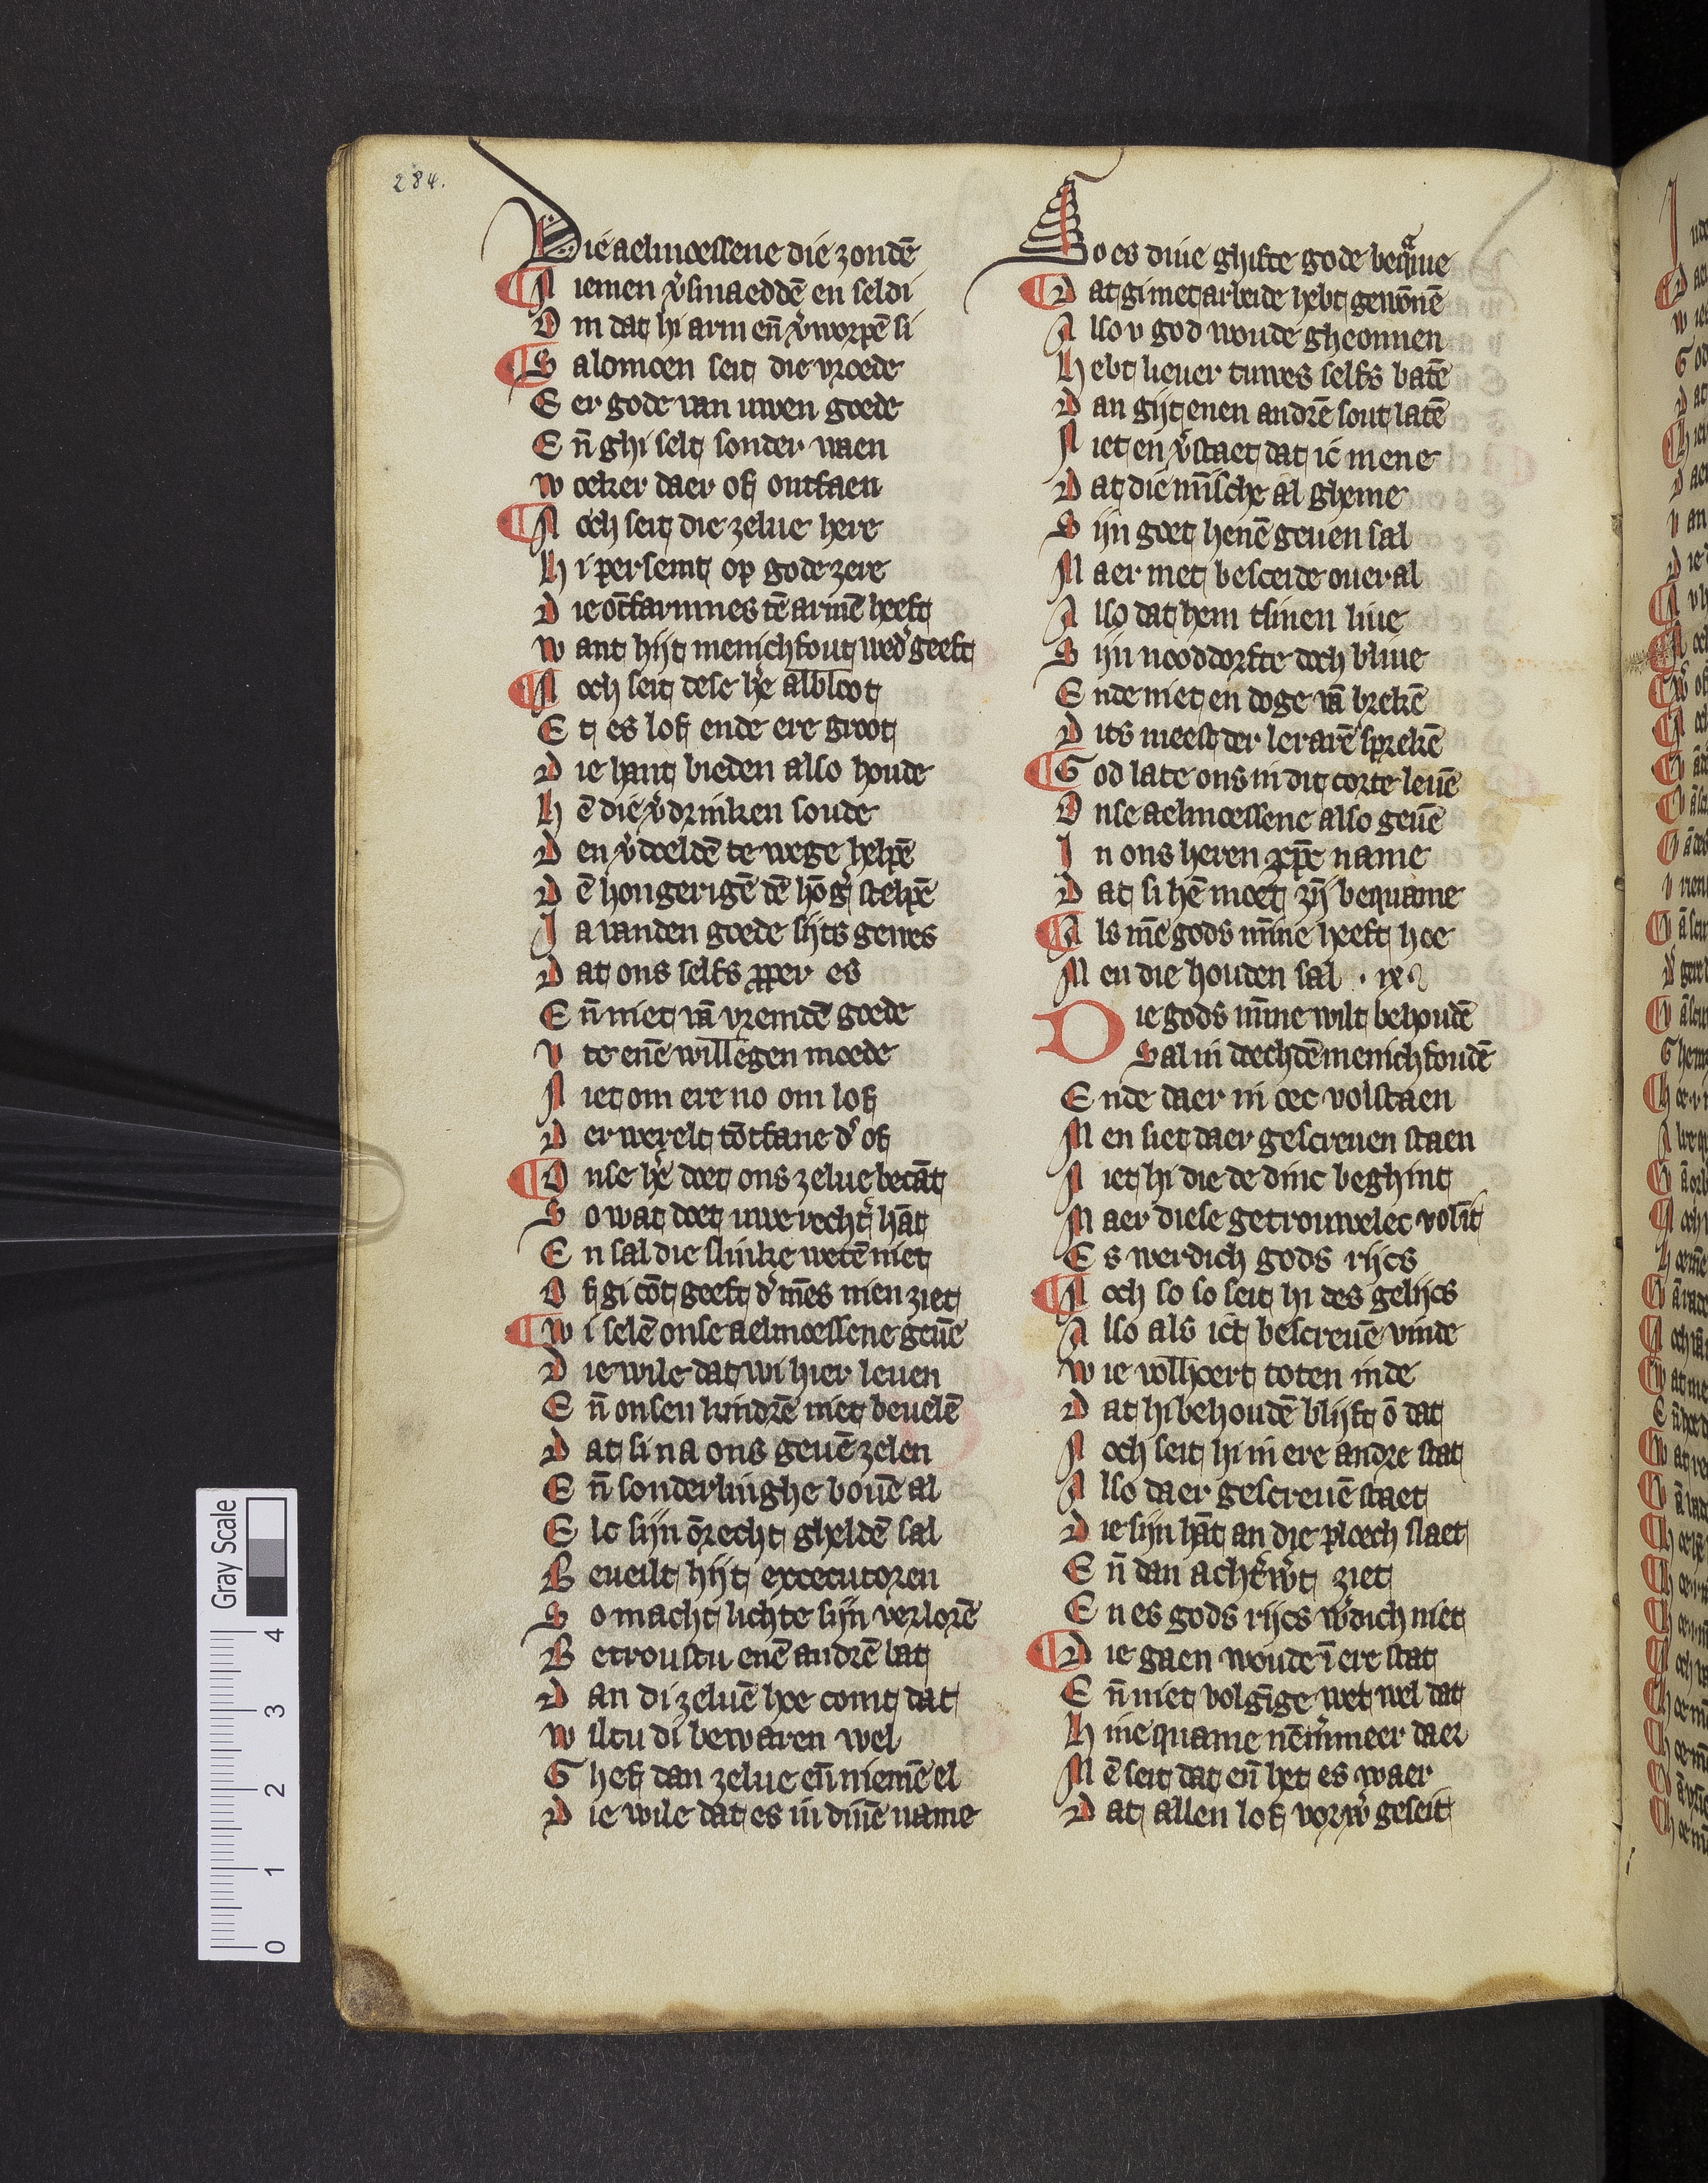 284.
Die aelmoessene die zondē
Niemen v̉smaeddē en seldi
Om dat hi arm en̄ v̉worpē si
Salomoen seit die vroede
Eer gode van uwen goede
En̄ ghi selt sonder waen
woeker daer of ontfaen
Noch seit die zelue here
hi persemt op gode zere
Die ōtfarmnes tē armē heeft
want hijt menichfout wed̉geeft
Noch seit dese h̉e albloot
Et es lof ende ere groot
Die hant bieden also houde
hē die v̉drinken soude
Den v̉doeldē te wege helpē
Dē hongerigē dē hōg̉ stelpē
Ja vanden goede sijts gewes
Dat ons selfs ꝓper es
En̄ niet vā vremdē goede
Vte enē willēgen moede
Niet om ere no om lof
Der werelt tōtfane d̉ of
Onse h̉e doet ons zelue becāt
So wat doet uwe recht̉ hāt
En sal die slinke wetē niet
Of gi cōt geeft d̉ mēs nien ziet
Wi selē onse aelmoessene geuē
Die wile dat wi hier leuen
En̄ onsen kindrē niet beuelē
Dat si na ons geuē zelen
En̄ sonderlinghe bouē al
Elc sijn ōrecht gheldē sal
Beueilt hijt excecutoren
So macht lichte sijn verlorē
Betroustu enē andrē bat
Dan di zeluē hoe comt dat
wiltu di bewaren wel
Ghef dan zelue en̄ niemē el
Die wile dat es in dinē name
So es dine ghifte gode bequame
Dat gi met arbeide hebt gewōnē
Also v god woude gheonnen
hebt lieuer tuwes selfs batē
Dan gijt enen andrē sout latē
Niet en v̉staet dat ic mene
Dat die mīsche al ghemene
Sijn goet henē geuen sal
Maer met besceide oueral
Also dat hem tsinen liue
Sijn nooddorfte doch bliue
Ende niet en doge vā brekē
Dits meest der lerarē sprekē
God late ons in dit corte leuē
Onse aelmoessene also geuē
In ons heren xp̄c name
Dat si hē moet zij̄ bequame
Als mē gods mīne heeft hoe
Men die houden sal . ix.
Die gods mīne wilt behoudē
Sal in doechdē menichfoudē
Ende daer in oec volstaen
Men siet daer gescreuen staen
Niet hi die de dinc beghint
Maer diese getrouwelec volīt
Es werdich gods rijcs
Noch so so seit hi des gelijcs
Also als ict bescreuē vinde
wie volhoert toten inde
Dat hi behoudē blijft ō dat
Noch seit hi in ere andre stat
Also daer gescreuē staet
Die sijn hāt an die ploech slaet
En̄ dan acht̉w̉t ziet
En es gods rijcs w̉dich niet
Die gaen woude ī ere stat
En̄ niet volgīge wet wel dat
Hine quame nēm̉meer daer
Mē seit dat en̄ het es waer
Dat allen lof vorw̉ geseit
Gray Scale
4
3
2
1
0